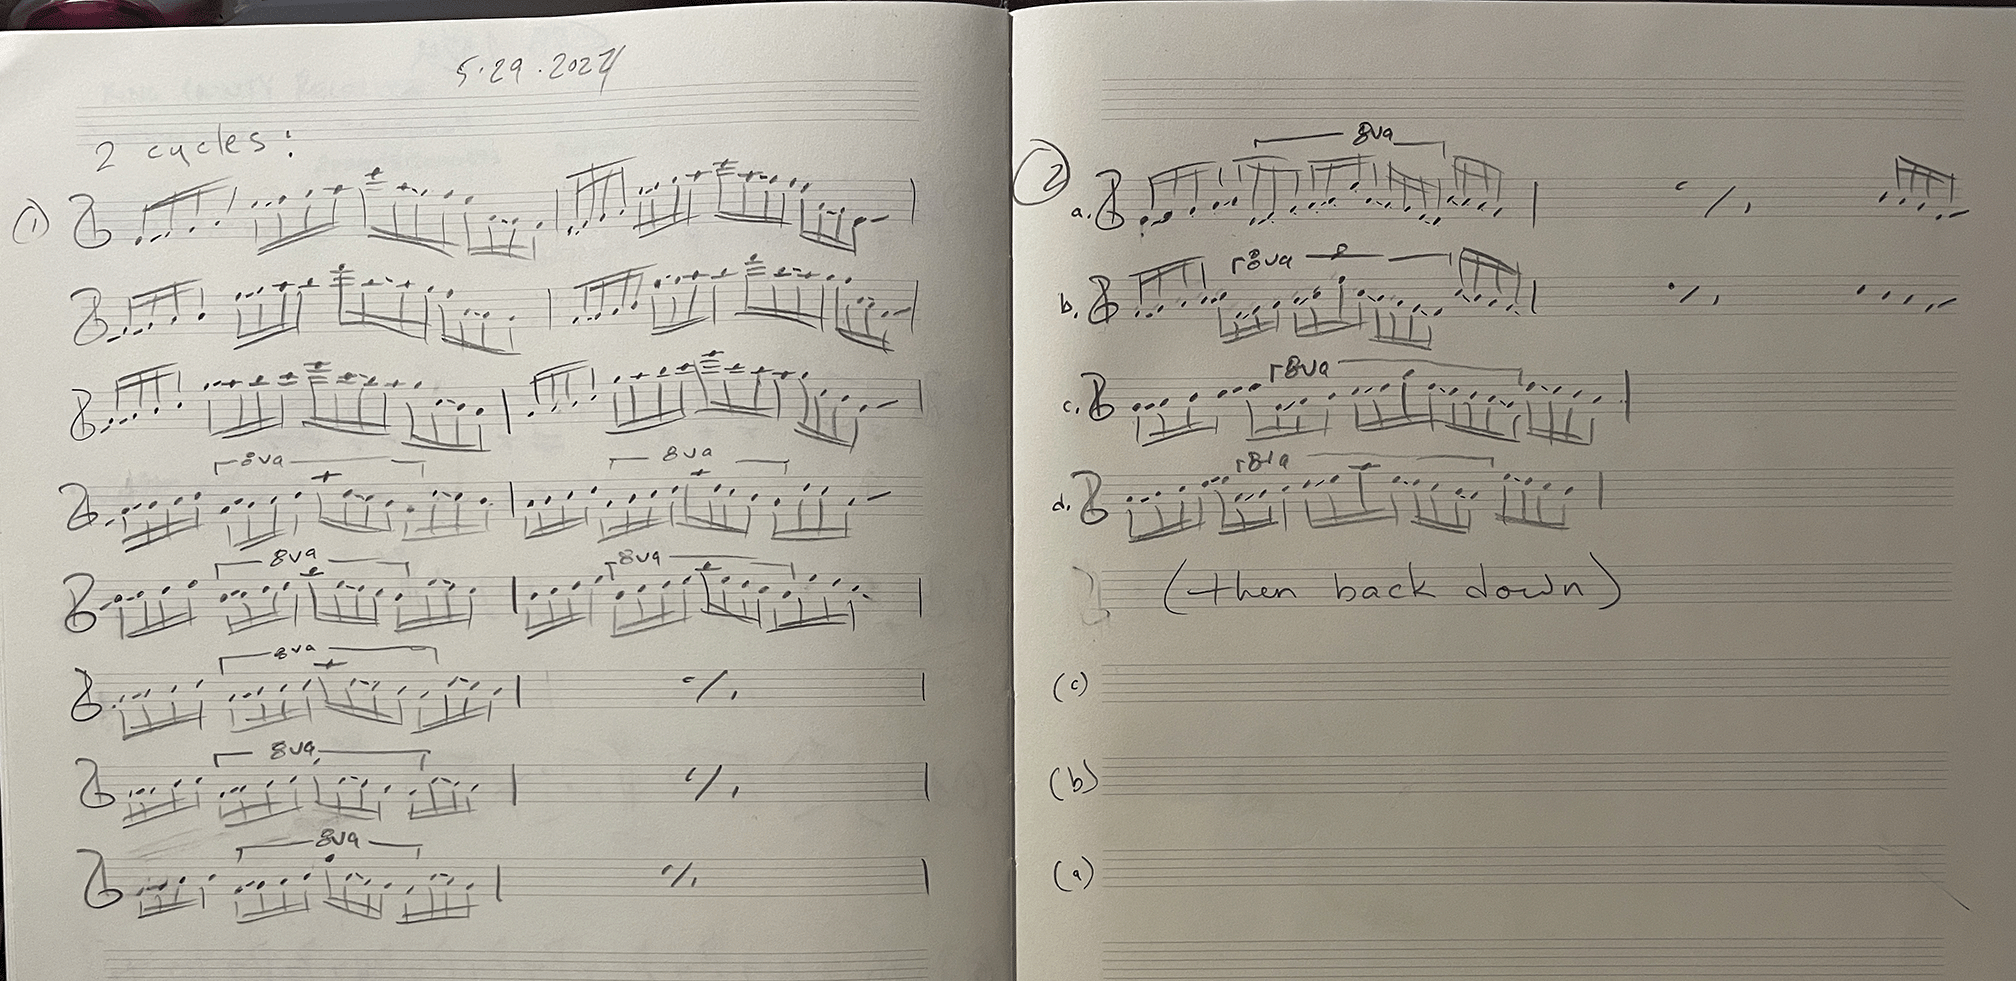 5·29·2024
2 cycles:
①
8va 8va
8va 8va
8va
8va
8va
②
8va
a.
b. 8va
c. 8va
d. 8va
(then back down)
(c)
(b)
(a)